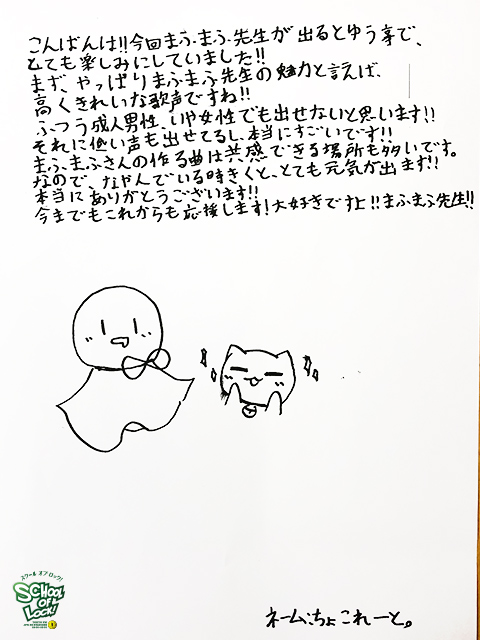 こんばんは!!今回まふまふ先生が出るとゆう事で、
とても楽しみにしていました!!
まず、やっぱりまふまふ先生の魅力と言えば、
高くきれいな歌声ですね!!
ふつう成人男性、いや女性でも出せないと思います!!
それに低い声も出せてるし、本当にすごいです!!
まふまふさんの作る曲は共感できる場所も多いです。
なので、なやんでいる時きくと、とても元気が出ます!!
本当にありがとうございます!!
今までもこれからも応援します!大好きですよ!!まふまふ先生!!
スクール オブ ロック!
SCHOOL
OF
LOCK!
ネーム:ちょこれーと。